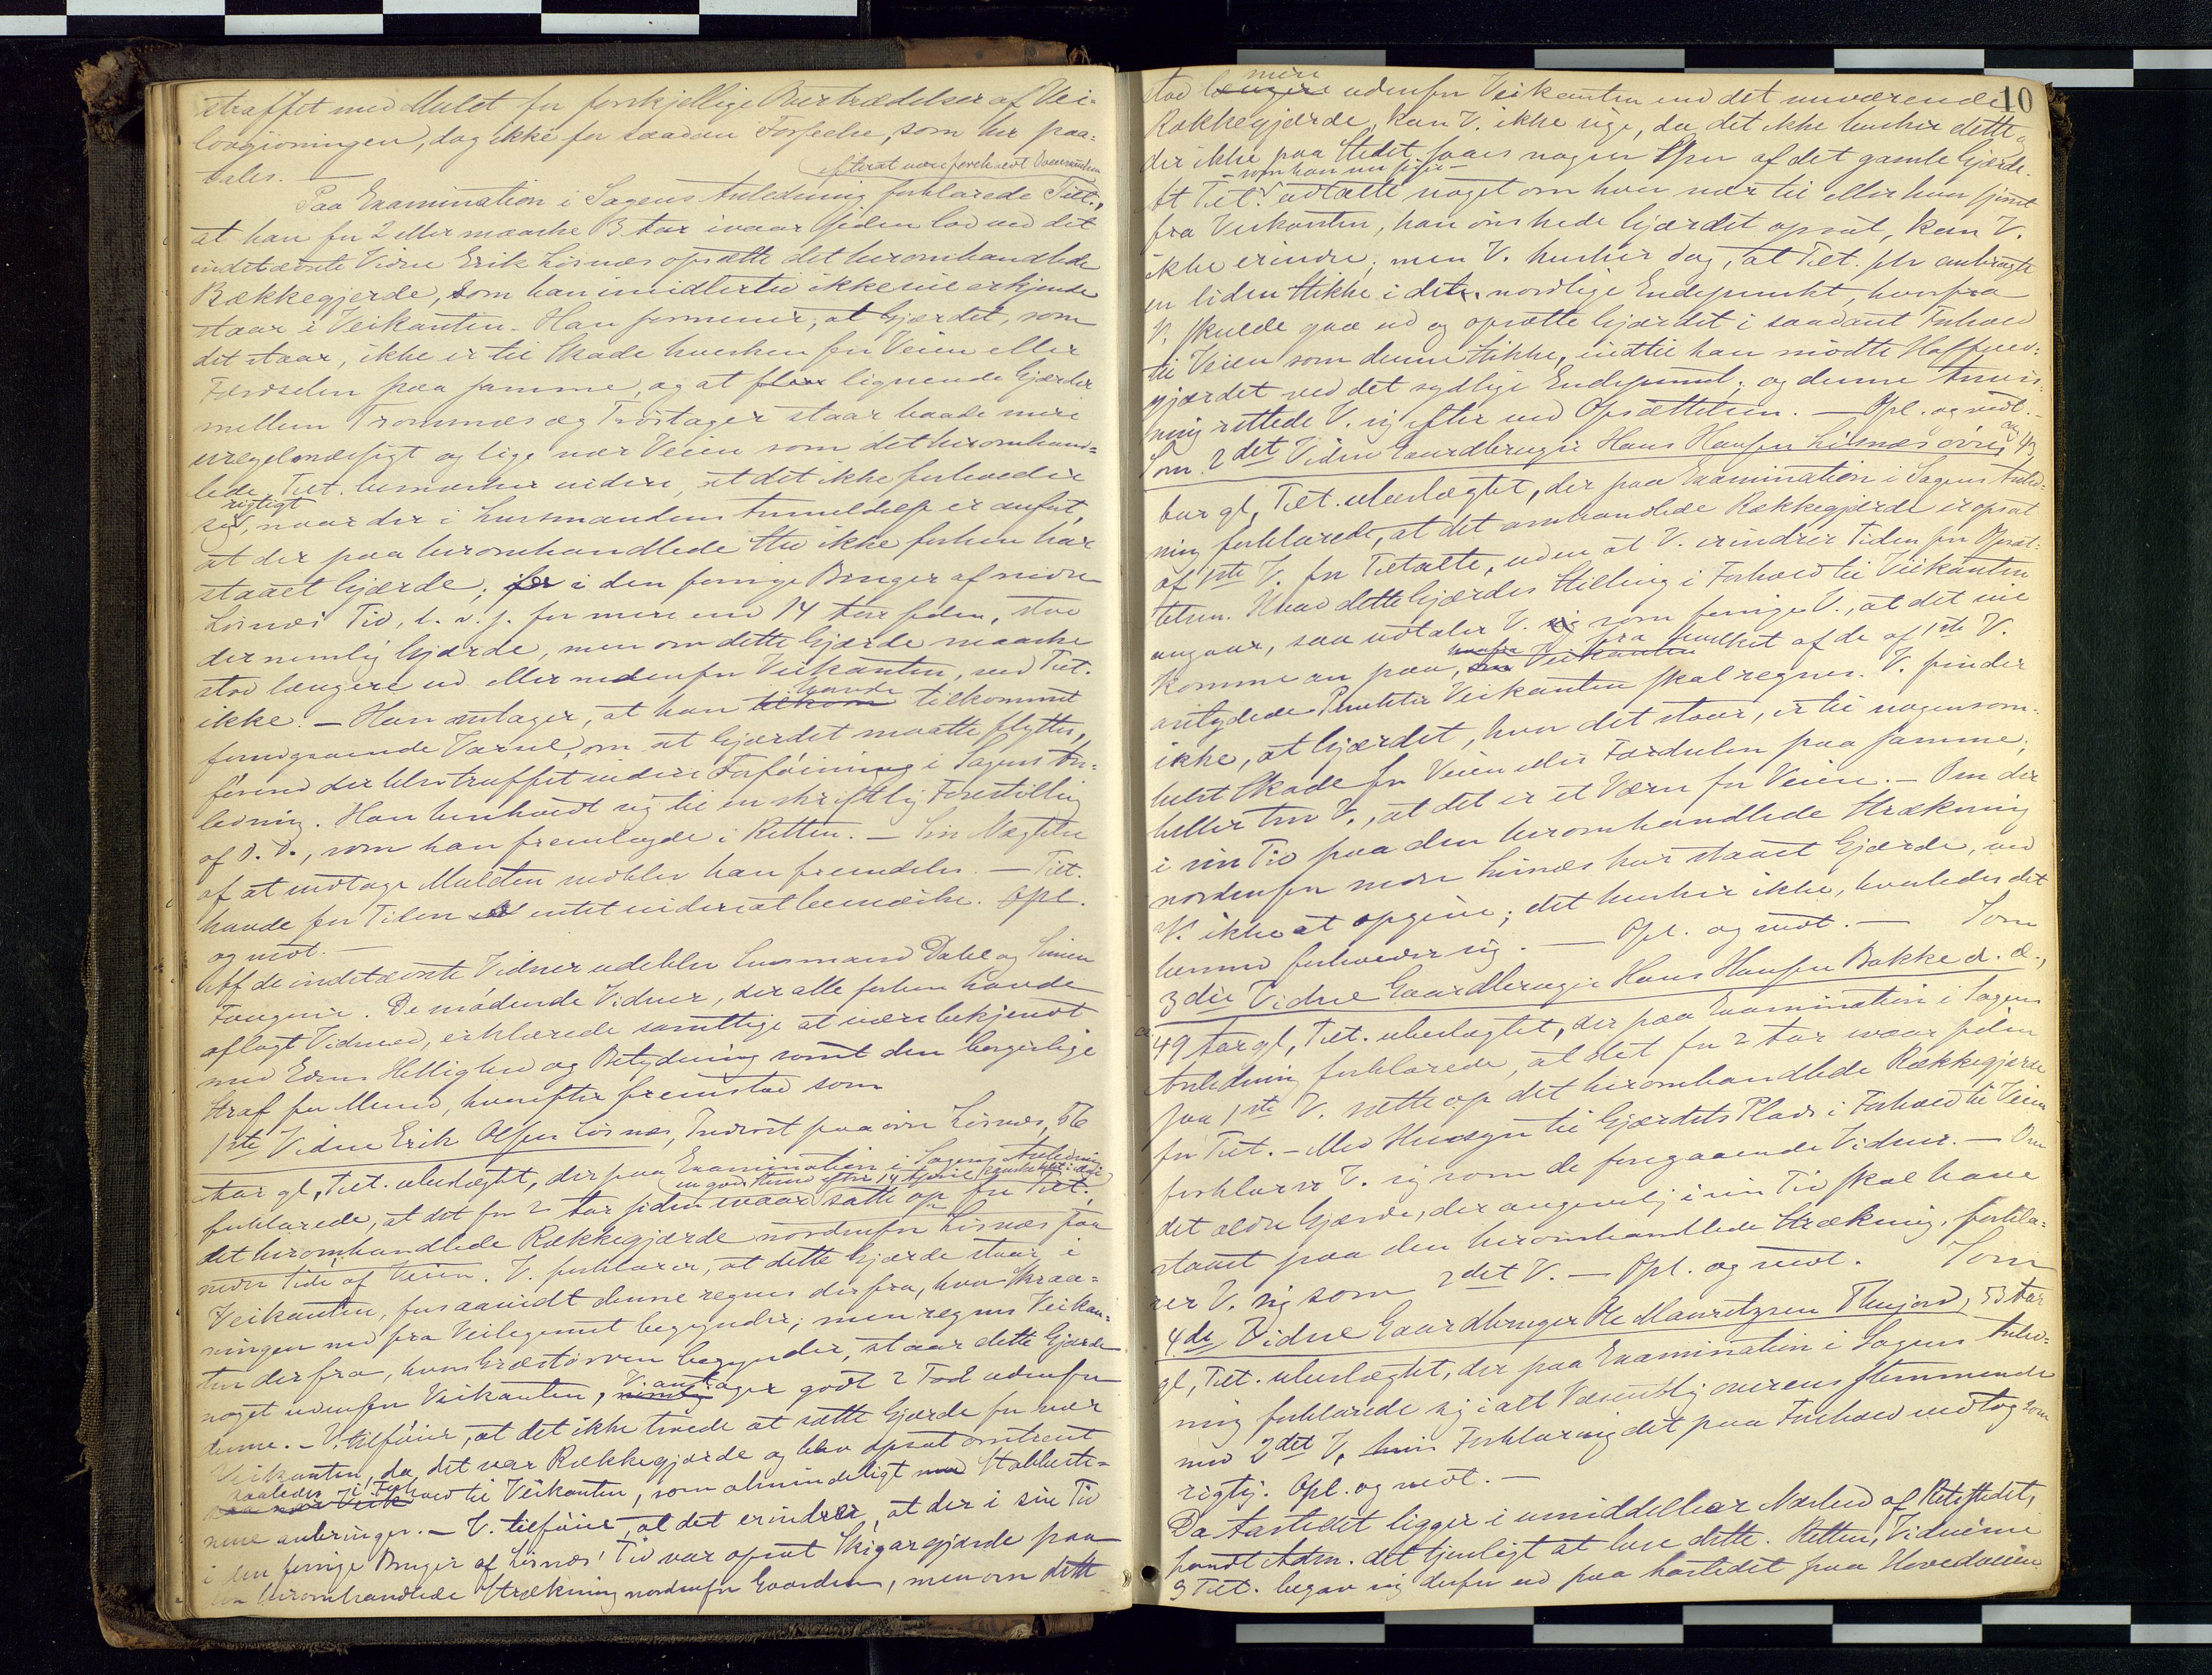 straffet med Mulct for forskjellige Overtrædelser af Vei-
lovgivningen, dog ikke for saadan Forseelse, som her paa-
tales. —
efterat være foreholdt Overensstem
Paa Examination i Sagens Anledning forklarede Tilt.,
at han for 2 eller maaske 3 Aar ivaar siden lod ved det
indstævnte Vidne Erik Lösnæs opsætte det heromhandlede
Rækkegjerde, som han imidlertid ikke vil erkjende
staar i Veikanten. Han formener, at Gjærdet, som
det staar, ikke er til Skade hverken for Veien eller
Færdselen paa samme, og at flere lignende Gjærder
mellem Tromnæs og Tröstager staar baade mere
uregelmæssigt og lige nær Veien som det heromhand-
lede. Tilt. bemærker videre, at det ikke forholder
sig rigtigt, naar der i Lensmandens Anmeldelse er anført,
at der paa heromhandlede Sted ikke forhen har
staaet Gjærde; for i den forrige Bruger af nedre
Lösnæs' Tid, d. v. s. for mere end 14 Aar siden, stod
der nemlig Gjærde, men om dette Gjærde maaske
stod længere ud eller nedenfor Veikanten, ved Tilt.
ikke. — Han antager, at han havde tilkommet
foregaaende Varsel, om at Gjærdet maatte flyttes,
förend der blev truffet videre Forföining i Sagens An-
ledning. Han henholdt sig til en skriftlig Forestilling
af D. D., som han fremlagde i Retten. — Sin Nægtelse
af at vedtage Mulcten vedblev han fremdeles. — Tilt.
havde for Tiden intet videre at bemærke. Opl.
og vedt. —
Af de indstævnte Vidner udeblev Lensmand Dahl og Simen
Faugerie. De mödende Vidner, der alle forhen havde
aflagt Vidneed, erklærede samtlige at være bekjendt
med Edens Hellighed og Betydning samt den borgerlige
Straf for Mened, hvorefter fremstod som
1ste Vidne Erik Olsen Lösnæs, Inderst paa övre Lösnæs, 56
Aar gl., Tilt. ubeslægtet, der paa Examination i Sagens Anledning
forklarede, at det for 2 Aar siden ivaar satte op for Tilt.
det heromhandlede Rækkegjærde nordenfor Lösnæs paa
nedre Side af Veien. V. forklarer, at dette Gjærde staar i
Veikanten, forsaavidt denne regnes derfra, hvor Skraa-
ningen ned fra Veilegemet begynder; men regnes Veikan-
ten derfra, hvor Græstörven begynder, staar dette Gjærde
noget udenfor Veikanten, V. antager godt 2 Fod udenfor
denne. — V. tilföier, at det ikke troede at sætte Gjærde for nær
Veikanten, da det var Rækkegjærde og blev opsat omtrent
saaledes i Forhold til Veikanten, som almindeligt med Stabbeste-
nene anbringes. — V. tilföier, at det erindrer, at der i sin Tid
i den forrige Bruger af Lösnæs' Tid var opsat Skigargjærde paa
den heromhandlede Strækning nordenfor Gaarden, men om dette
10
stod længere mere udenfor Veikanten end det nuværende
Rækkegjærde, kan V. ikke sige, da det ikke husker dette og
der ikke paa Stedet saaes nogen Spor af det gamle Gjærde.
At Tilt. — som han nu siger — udtalte noget om hvor nær til eller hvor fjernt
fra Veikanten, han önskede Gjærdet opsat, kan V.
ikke erindre; men V. husker dog, at Tilt. selv anbragte
en liden Stikke i det nordlige Endepunkt, hvorfra
V. skulde gaa ud og opsætte Gjærdet i saadant Forhold
til Veien som denne Stikke, indtil han mödte
gjærdet ved det sydlige Endepunct; og denne Anvis-
ning rettede V. sig efter ved Opsættelsen. — Opl. og vedt. —
Som 2det Vidne Gaardbruger Hans Hansen Lösnæs övre, 43
Aar gl., Tilt. ubeslægtet, der paa Examination i Sagens Anled-
ning forklarede, at det omhandlede Rækkegjærde er opsat
af 1ste V. for Tiltalte, uden at V. erindrer Tiden for Opsæt-
telsen. Hvad dette Gjærdes Stilling i Forhold til Veikanten
angaar, saa udtaler V. sig som forrige V., at det vil
komme an paa, hvorfra hvilket af de af 1ste V.
antydede Puncter Veikanten skal regnes. V. finder
ikke, at Gjærdet, hvor det staar, er til nogensom-
helst Skade for Veien eller Færdselen paa samme;
heller tror V., at det er et Værn for Veien. — Om der
i sin Tid paa den heromhandlede Strækning
nordenfor nedre Lösnæs har staaet Gjærde, ved
V. ikke at opgive; det husker ikke, hvorledes det
hermed forholder sig. — Opl. og vedt. — Som
3die Vidne Gaardbruger Hans Hansen Bakke d. æ.,
49 Aar gl., Tilt. ubeslægtet, der paa Examination i Sagens
Anledning forklarede, at det for 2 Aar ivaar siden
saa 1ste V. sætte op det heromhandlede Rækkegjærde
for Tilt. — Med Hensyn til Gjærdets Plads i Forhold til Veien
forklarer V. sig som de foregaaende Vidner. — Om
det ældre Gjærde, der angivelig i sin Tid skal have
staaet paa den heromhandlede Strækning, forkla-
rer V. sig som 2det V. — Opl. og vedt. Som
4de Vidne Gaardbruger Ole Mauritzsen Thujord, 53 Aar
gl., Tilt. ubeslægtet, der paa Examination i Sagens Anled-
ning forklarede sig i alt Væsentlig overensstemmende
med 2det V., hvis Forklaring det paa Forhold vedtog som
rigtig. Opl. og vedt. —
Da Aastedet ligger i umiddelbar Nærhed af Retsstedet,
fandt Adm. det tjenligt at bese dette. Retten, Vidnerne
og Tilt. begav sig derfor ud paa Aastedet paa Hovedveien